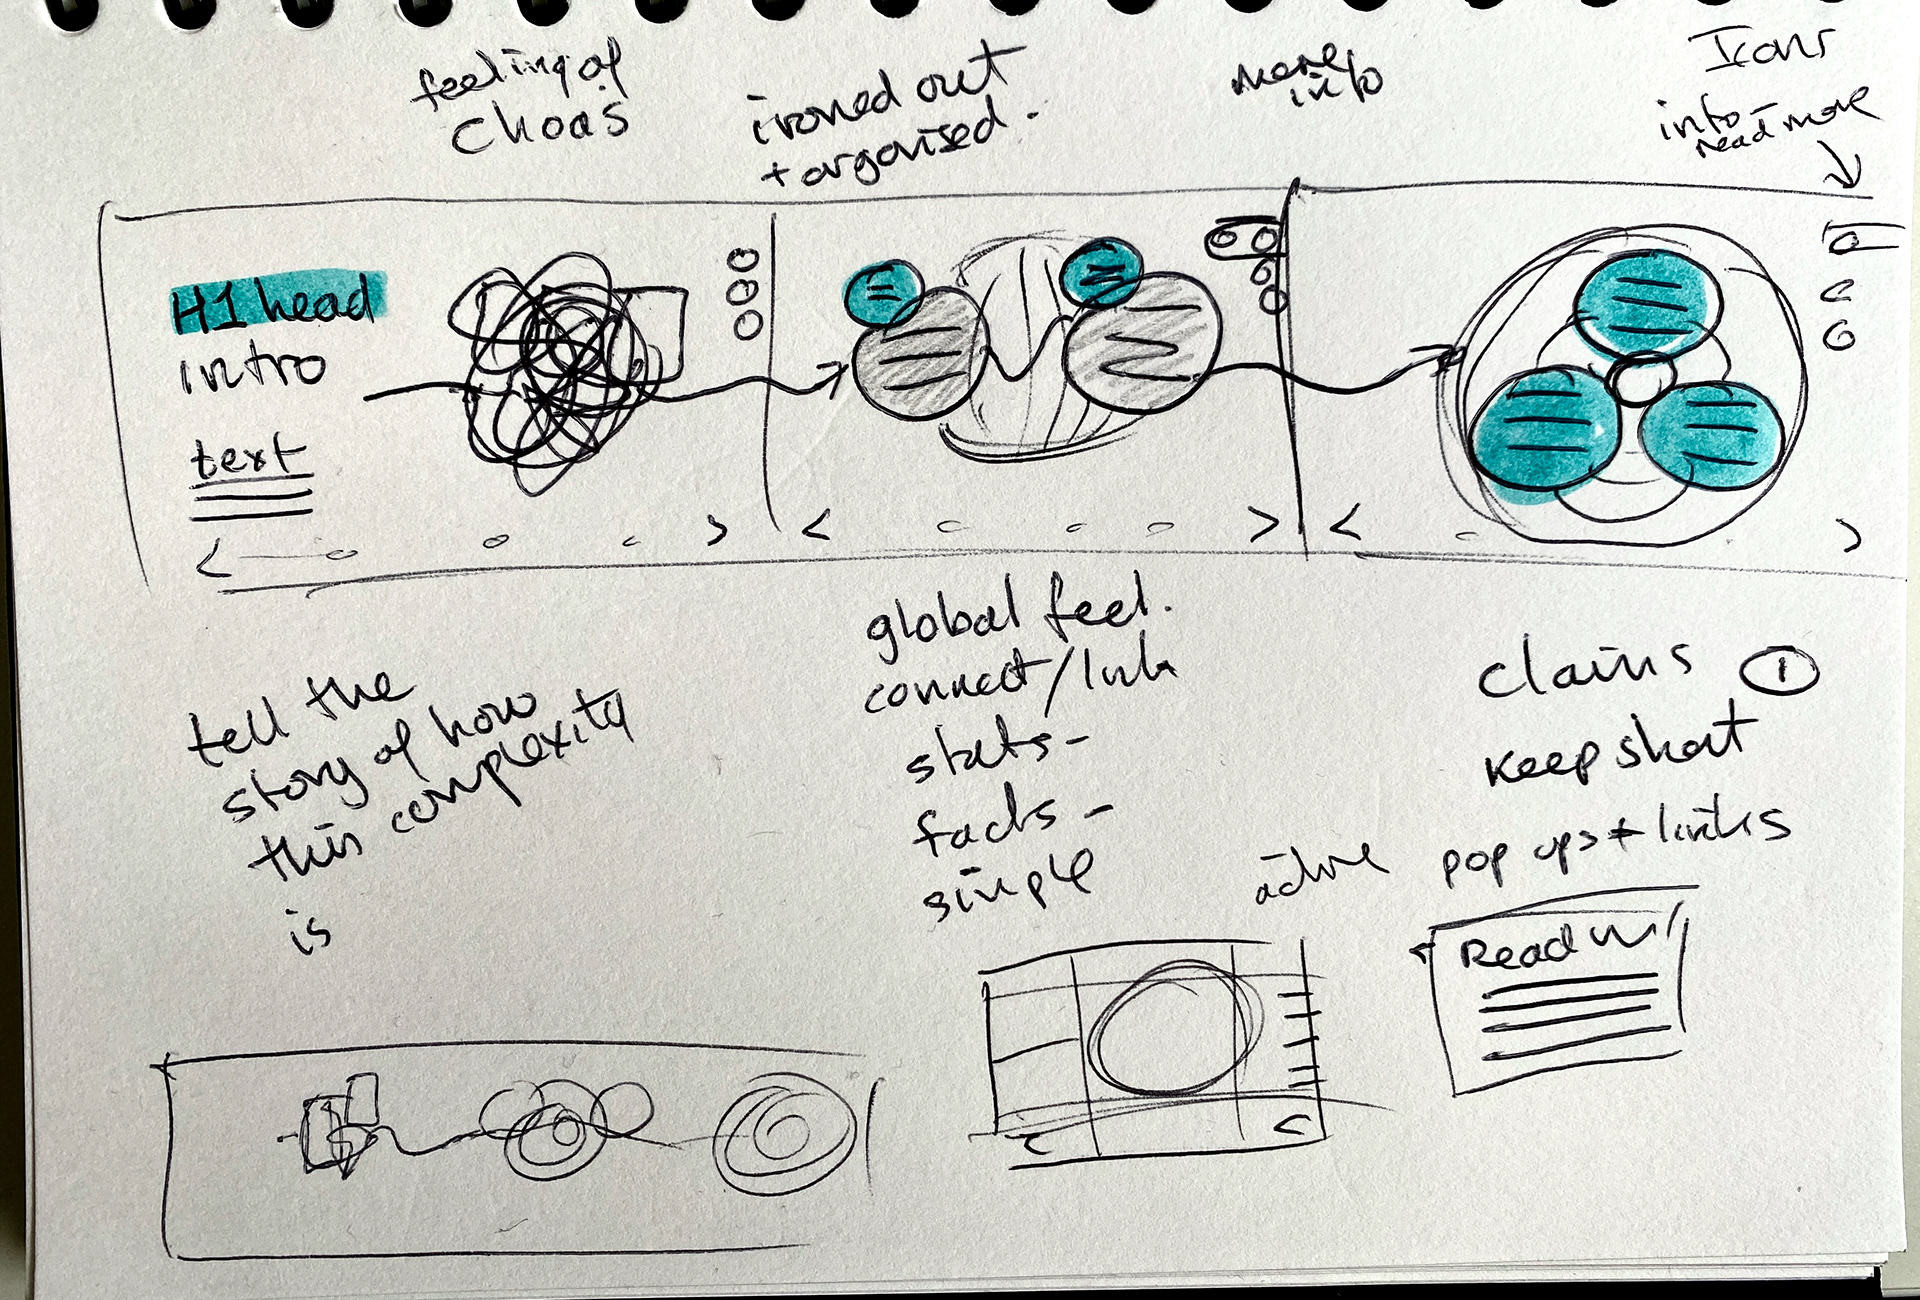 feeling of
choas
ironed out
+ organised.
more
info
Icons
into -
read more
H1 head
intro
text
tell the
story of how
this complexity
is
global feel.
connect/link
stats -
facts -
simple
claims 1
Keep short
pop ups + links
active
Read